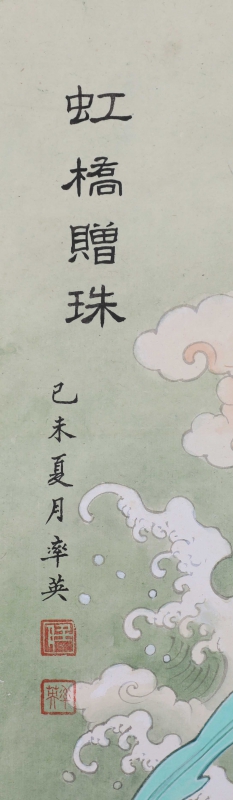 虹橋贈珠
己未夏月率英